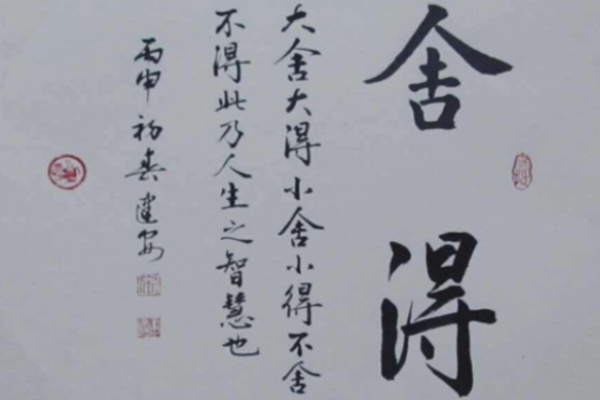 舍得
大舍大得小舍小得不舍
不得此乃人生之智慧也
丙申初春建安